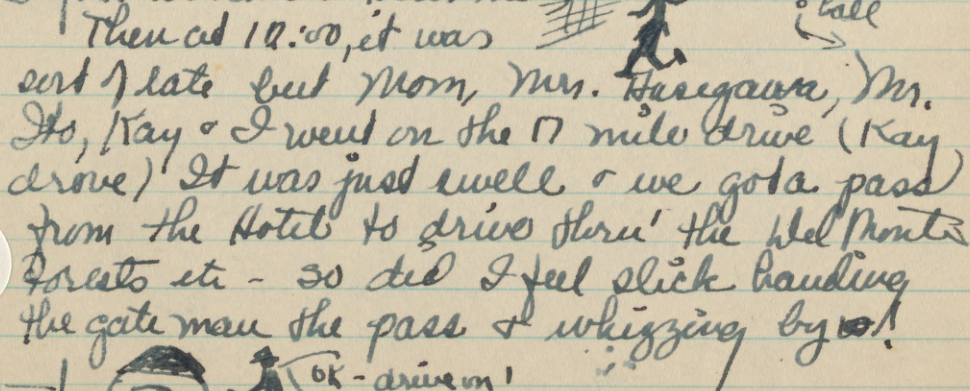 ball
Then at 12:00, it was
sort of late but Mom, Mrs. Hasegawa, Mr.
Ito, Kay & I went on the 17 mile drive (Kay
drove) It was just swell & we got a pass
from the Hotel to drive thru' the Del Monte
Forests etc - so did I feel slick handing
the gate man the pass & whizzing by!
OK - drive on!